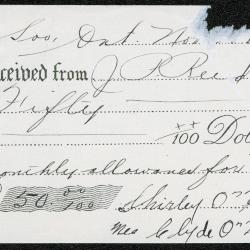 Soo, Ont. Nov.
ceived from J. P. Ree
Fifty
xx/100 Dol
onthly allowance for
50.00/100 Shirley O
Mrs Clyde O